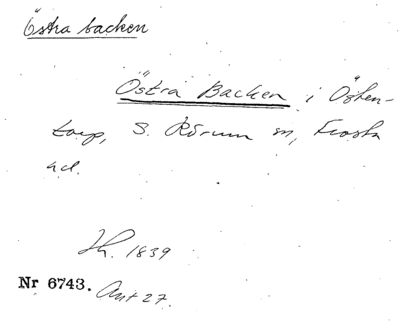 Östra backen
Östra Backen i Öshen-
torp, S. Rörum sn, Frosta
hd.
Jh. 1839
Nr 6743. Ant 27.